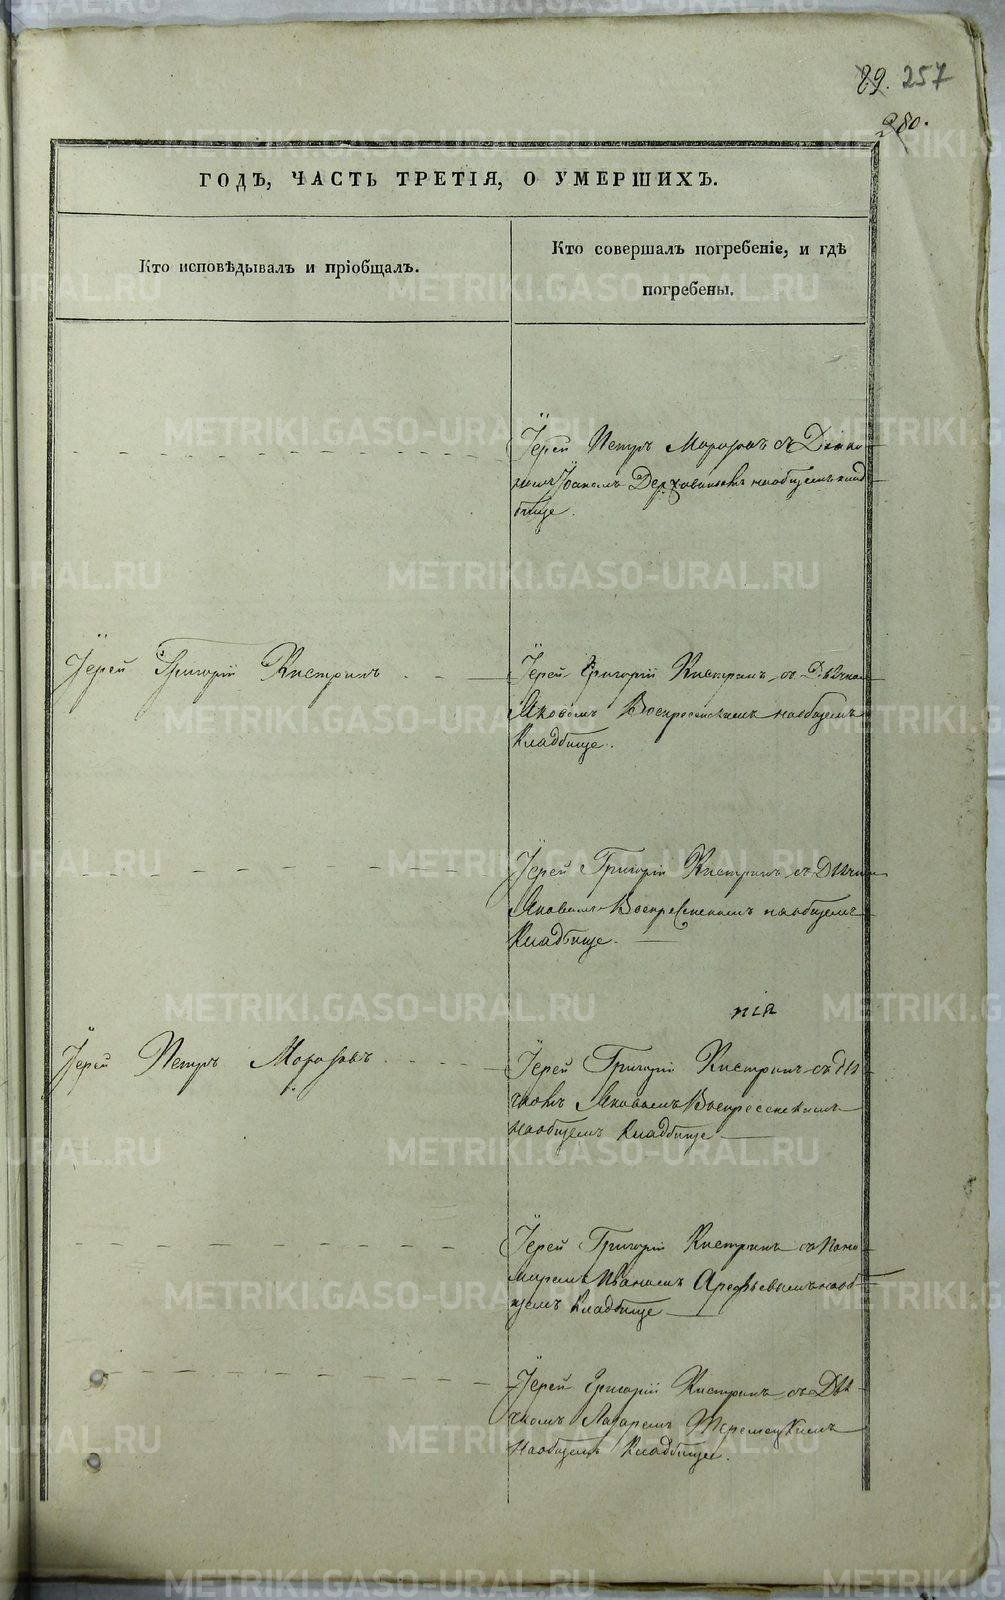 89. 257
280.
ГОДЪ, ЧАСТЬ ТРЕТІЯ, О УМЕРШИХЪ.
Кто исповѣдывалъ и пріобщалъ.
Кто совершалъ погребеніе, и гдѣ
погребены.
Іерей Петръ Морозовъ съ Діако-
номъ Іоаномъ Державинымъ на общемъ клад-
бище.
Іерей Григорій Кистринъ
Іерей Григорій Кистринъ съ Дьячкомъ
Яковомъ Воскресенскимъ на общемъ
Кладбище.
Іерей Григорій Кистринъ съ Дьячком
Яковомъ Воскресенскомъ на общемъ
Кладбище.
нія
Іерей Петръ Морозовъ
Іерей Григорій Кистринъ съ дья-
чкомъ Яковымъ Воскресенскимъ
на общемъ Кладбище
Іерей Григорій Кистринъ съ Поно-
маремъ Иваномъ Арефьевымъ на об-
щемъ Кладбище
Іерей Григорій Кистринъ съ Дья-
чкомъ Лазаремъ Теремецкимъ
На общемъ Кладбище.
METRIKI.GASO-URAL.RU